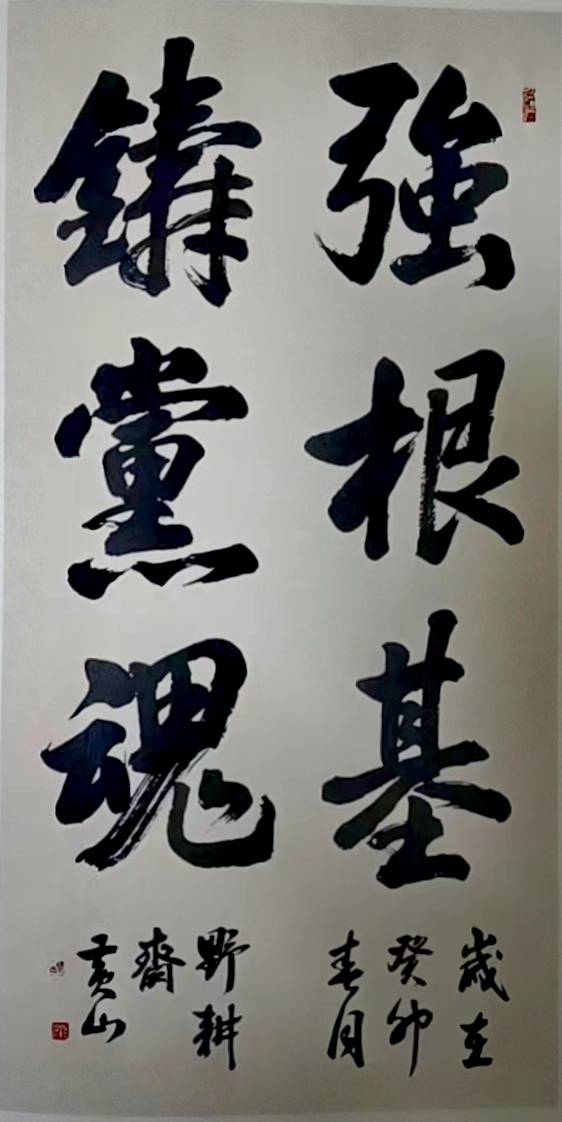 強根基
鑄黨魂
歲在
癸卯
春月
野耕
齋
黃山